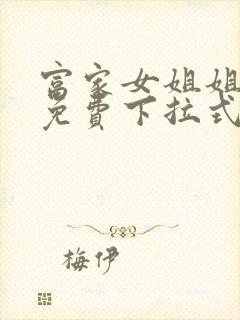 富家女姐姐
免費下拉式
梅伊